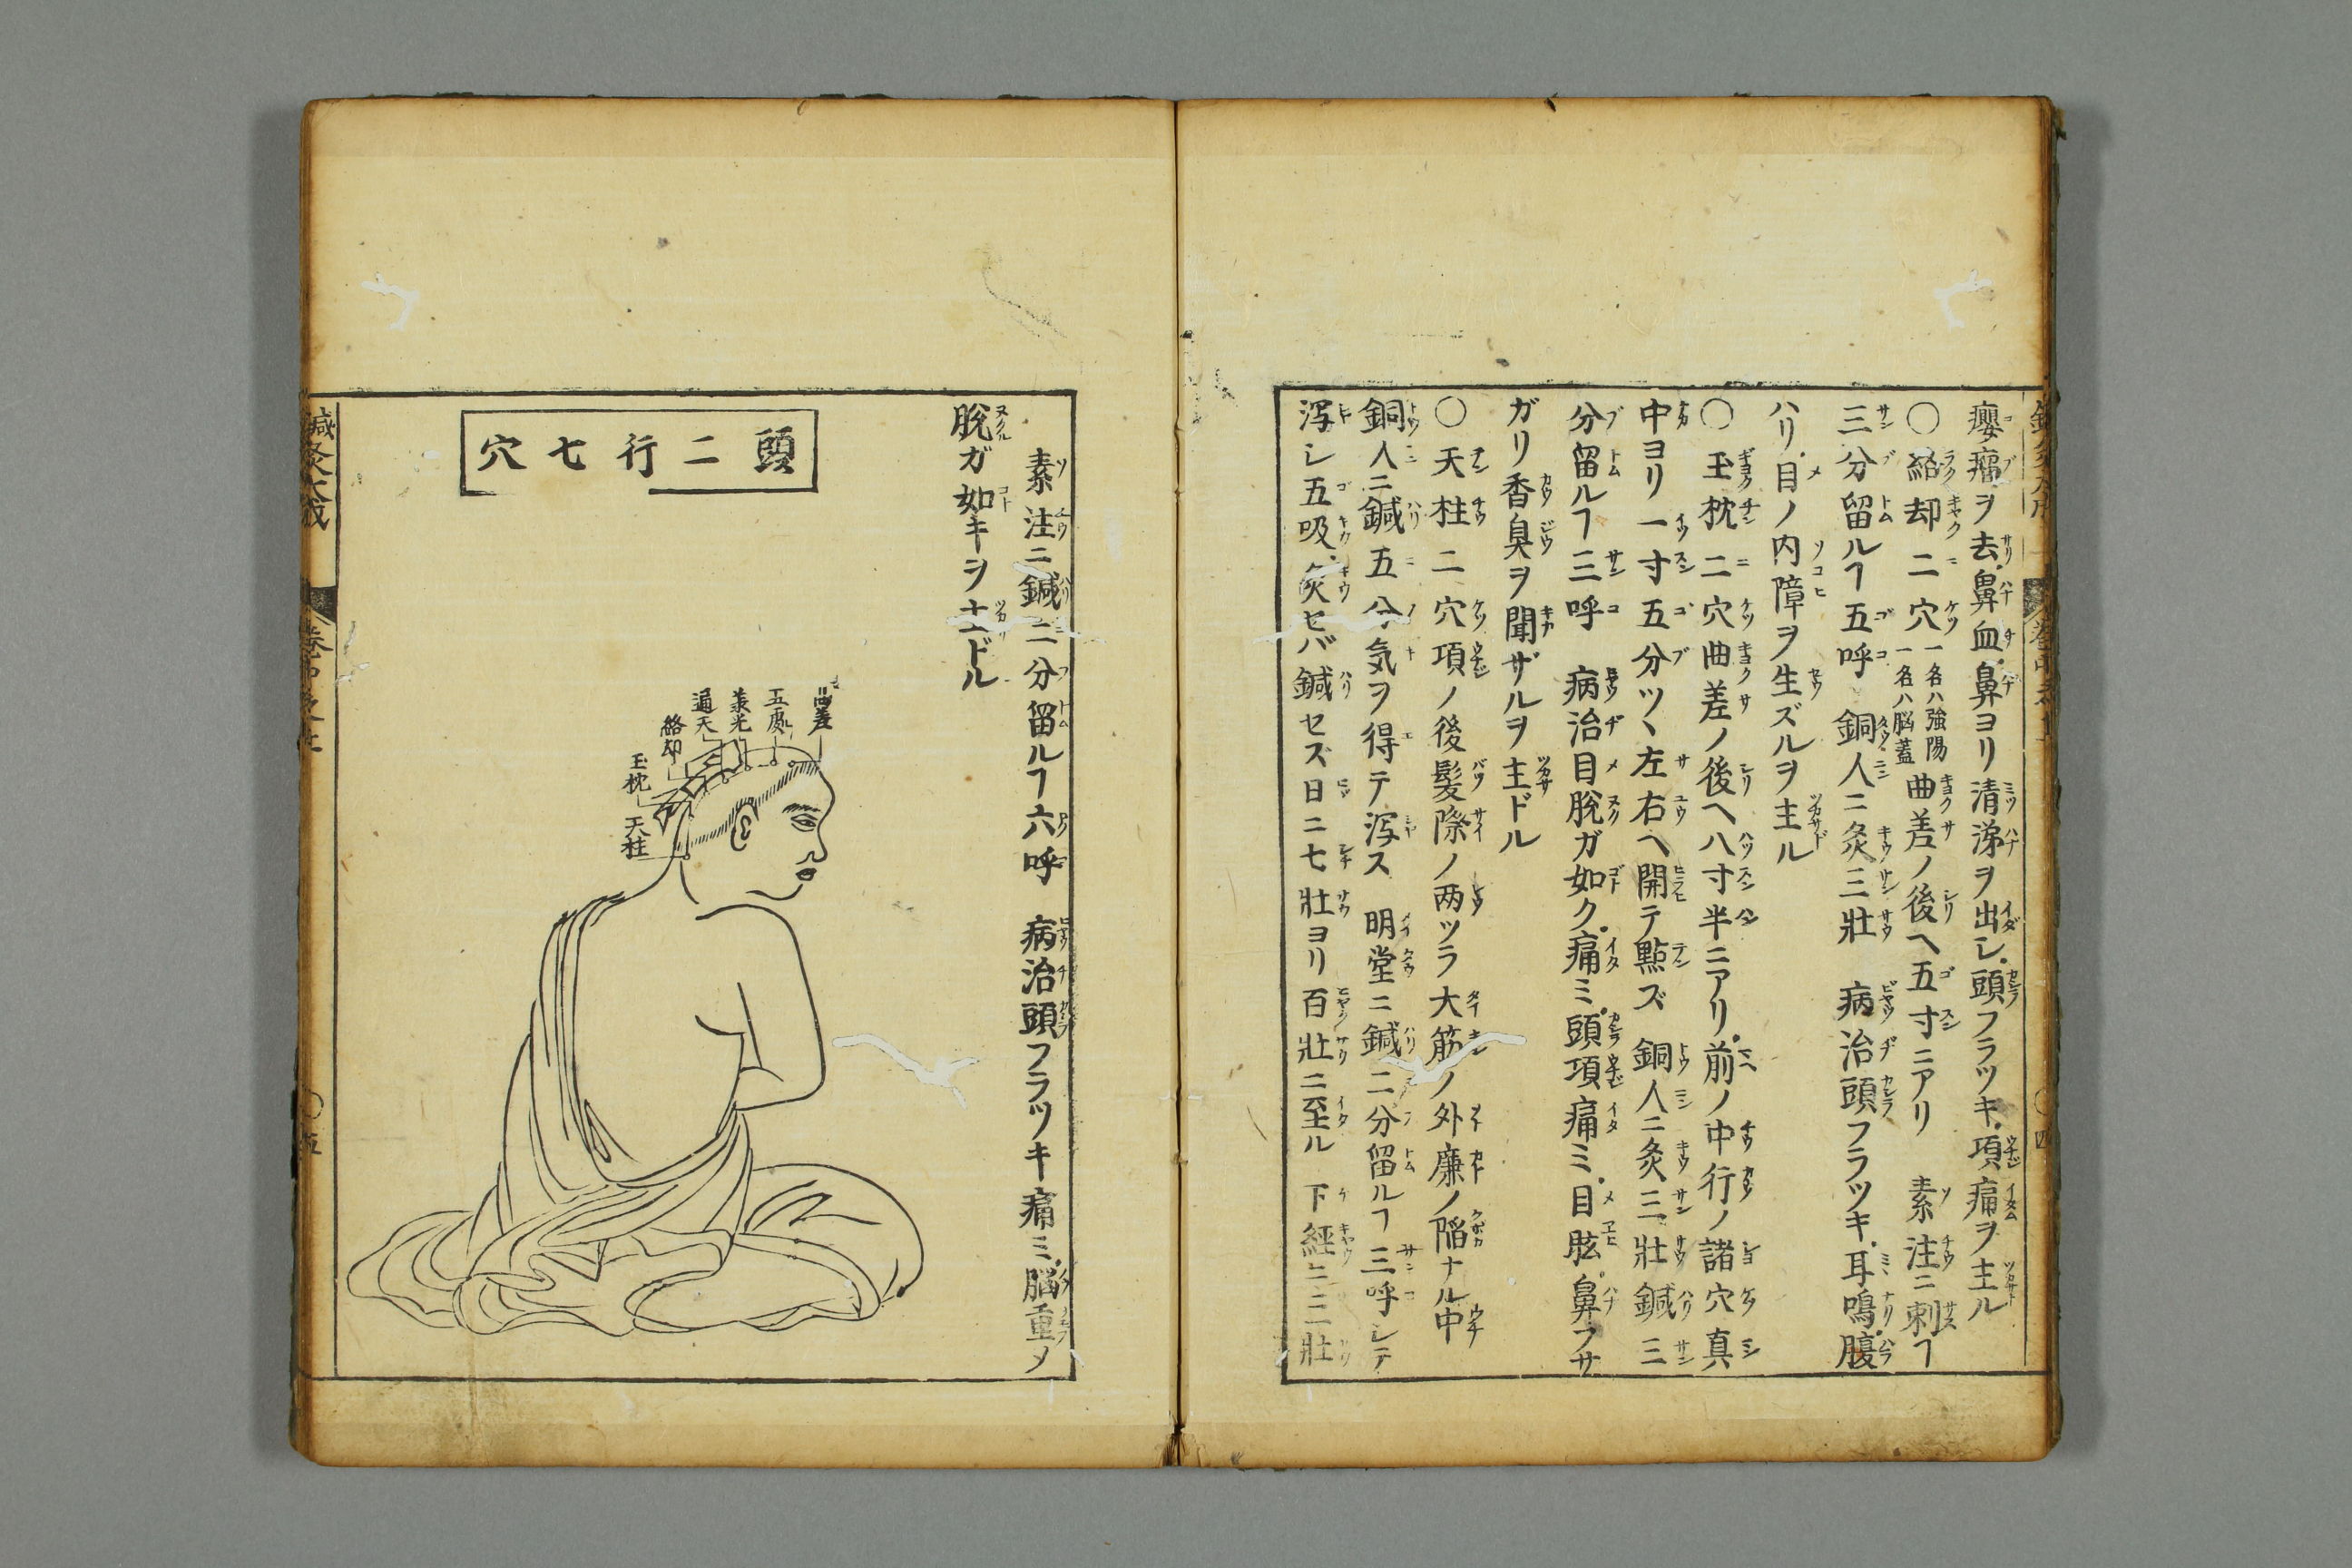 癭瘤ヲ去.鼻血.鼻ヨリ清涕ヲ出シ.頭フラツキ.項痛ヲ主ル
〇絡却二穴一名ハ強陽一名ハ脳蓋曲差ノ後ヘ五寸ニアリ 素注ニ刺ヿ
三分留ルヿ五呼 銅人ニ灸三壯 病治頭フラツキ.耳鳴.腹
ハリ.目ノ内障ヲ生ズルヲ主ドル
〇玉枕二穴曲差ノ後ヘ八寸半ニアリ.前ノ中行ノ諸穴真
中ヨリ一寸五分ツヽ左右ヘ開テ點ズ 銅人ニ灸三壯鍼三
分留ルヿ三呼 病治目脱ガ如ク.痛ミ.頭項痛ミ.目眩.鼻フサ
ガリ香臭ヲ聞ザルヲ主ドル
〇天柱二穴項ノ後髪際ノ两ツラ大筋ノ外廉ノ陷ナル中
銅人ニ鍼五分気ヲ得テ泻ス 明堂ニ鍼二分留ルヿ三呼シテ
泻シ五吸.灸セバ鍼セズ日ニ七壯ヨリ百壯ニ至ル 下經ニ三壯
素注ニ鍼二分留ルヿ六呼 病治頭フラツキ痛ミ.脳重メ
脱ガ如キヲ主ドル
頭二行七穴
曲差
五處
承光
通天
絡却
玉枕
天柱